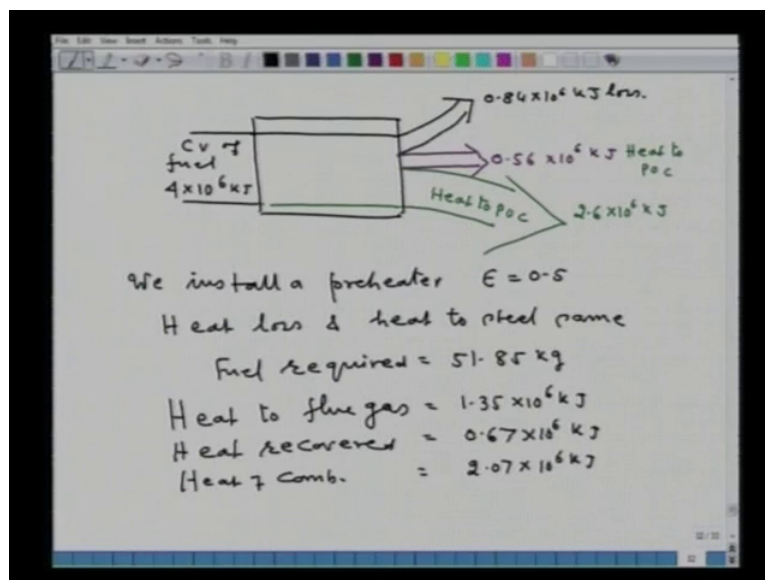 File Edit View Insert Actions Tools Help
0.84×10⁶ kJ loss.
CV of
fuel
4×10⁶ kJ
0.56 ×10⁶ kJ Heat to
POC
Heat to POC
2.6×10⁶ kJ
We install a preheater ε = 0.5
Heat loss & heat to steel same
Fuel required = 51.85 kg
Heat to flue gas = 1.35 ×10⁶ kJ
Heat recovered = 0.67×10⁶ kJ
Heat of Comb. = 2.07×10⁶ kJ
32/33
32